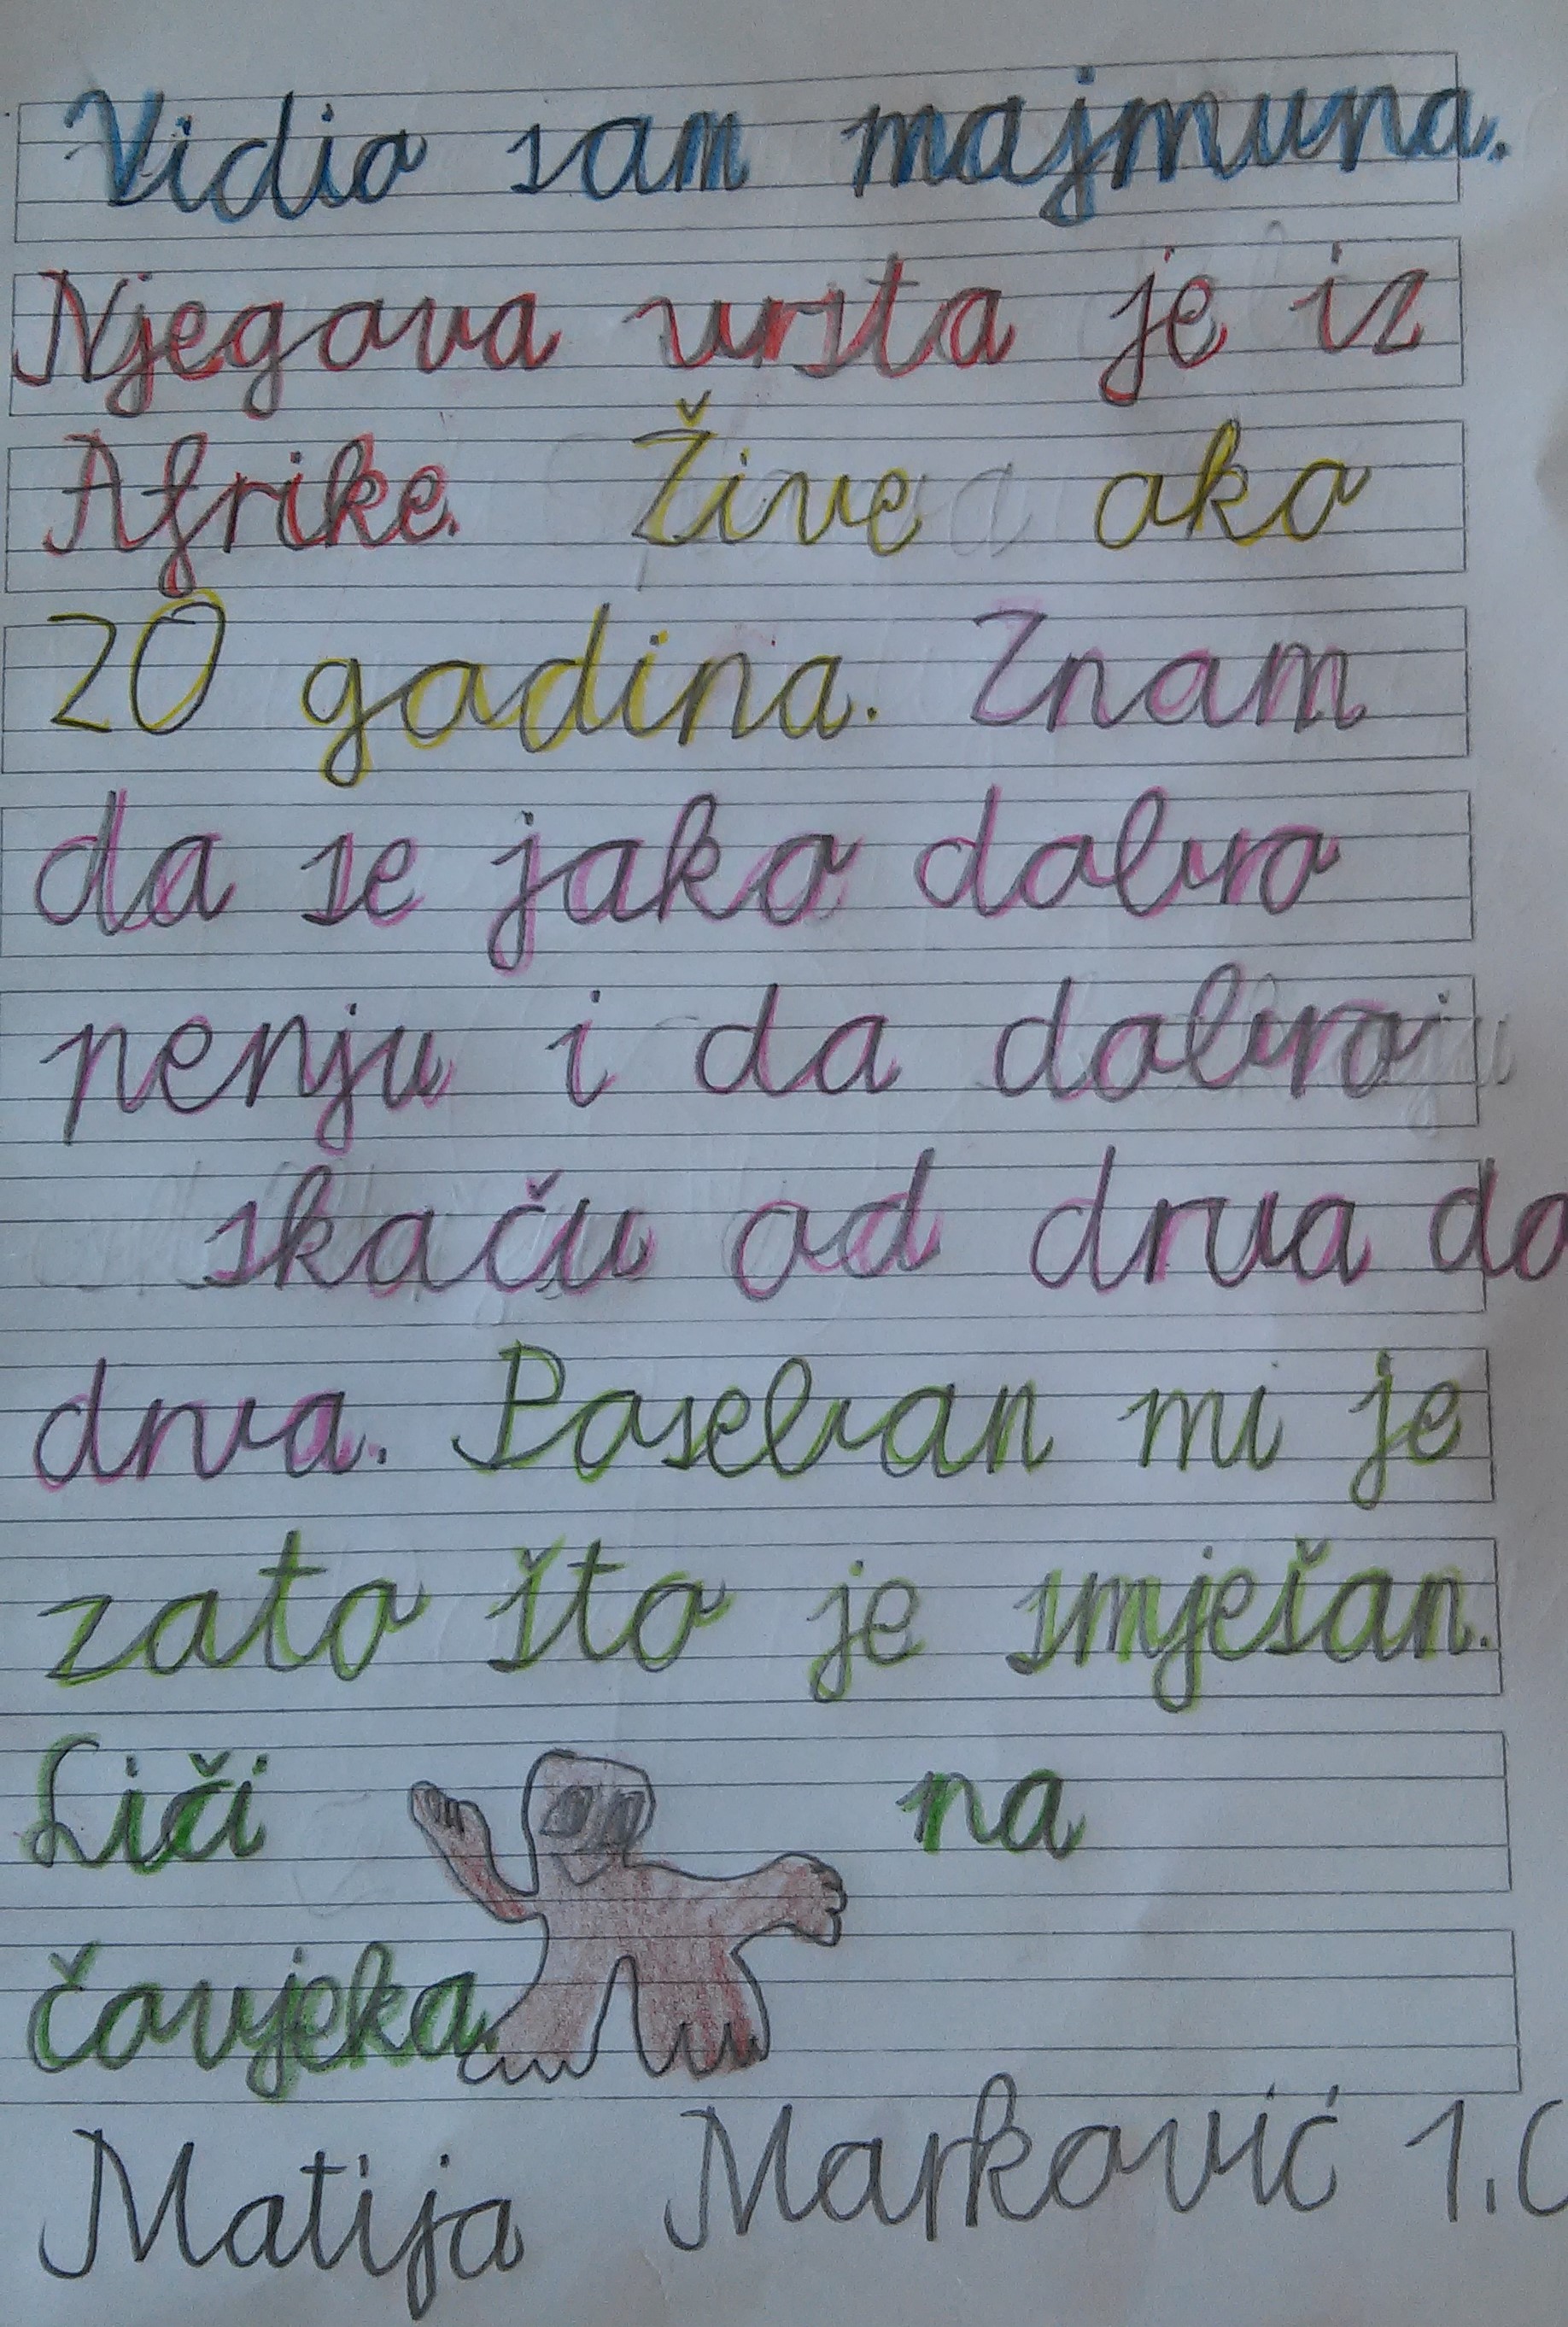 Vidio sam majmuna.
Njegova vrsta je iz
Afrike. Žive oko
20 godina. Znam
da se jako dobro
penju i da dobro
skaču od drva do
drva. Poseban mi je
zato što je smješan.
Liči na
čovjeka.
Matija Marković 1.